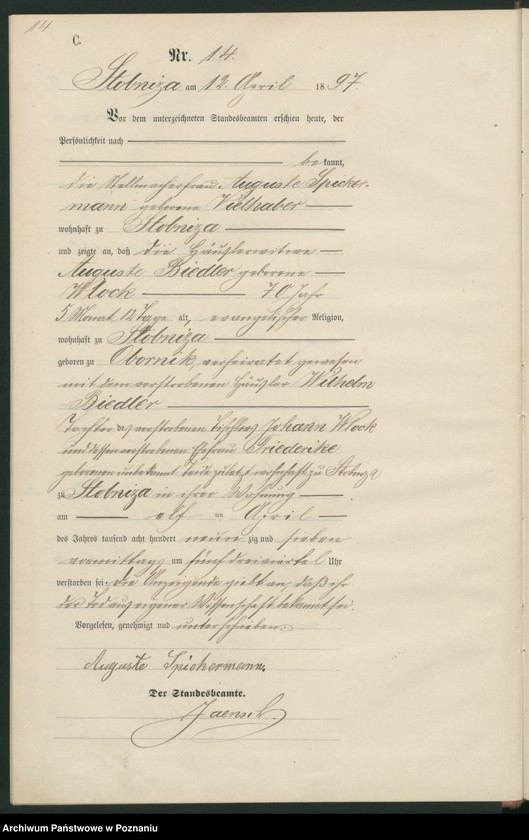 14
C.
Nr. 14.
Stobniza am 12. April 1897.
Vor dem unterzeichneten Standesbeamten erschien heute, der
Persönlichkeit nach
bekannt,
die Stellmacherfrau Auguste Spicker-
mann geborene Vielhaber
wohnhaft zu Stobniza
und zeigte an, daß die Häuslerwitwe
Auguste Biedler geborene
Wlock 70 Jahr
5 Monat 12 Tage alt, evangelischer Religion,
wohnhaft zu Stobniza
geboren zu Obornik, verheiratet gewesen
mit dem verstorbenen Häusler Wilhelm
Biedler
Tochter des verstorbenen Tischlers Johann Wlock
und dessen verstorbenen Ehefrau Friederike
geborenen unbekannt beide zuletzt wohnhaft zu Stobniza
zu Stobniza in ihrer Wohnung
am elf ten April
des Jahres tausend acht hundert neun zig und sieben
vormittags um fünf dreiviertel Uhr
verstorben sei. Die Anzeigende giebt an, daß ihr
der Tod aus eigener Wissenschaft bekannt sei.
Vorgelesen, genehmigt und unterschrieben
Auguste Spickermann.
Der Standesbeamte.
Jaensch.
Archiwum Państwowe w Poznaniu